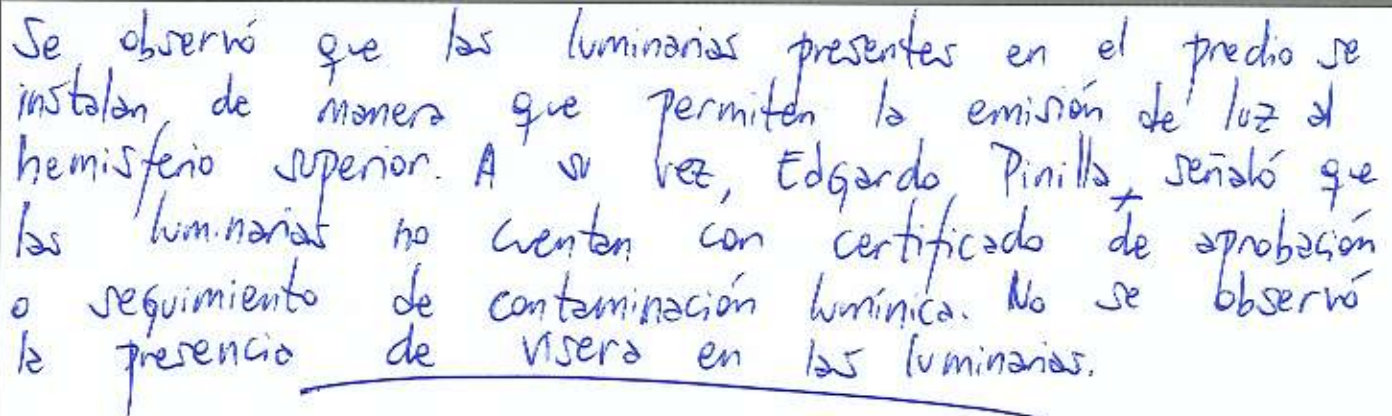 Se observó que las luminarias presentes en el predio se
instalan de manera que permiten la emisión de luz al
hemisferio superior. A su vez, Edgardo Pinilla, señaló que
las luminarias no cuentan con certificado de aprobación
o seguimiento de contaminación lumínica. No se observó
la presencia de visera en las luminarias.